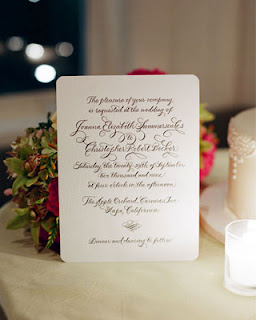 The pleasure of your company
is requested at the wedding of
Joanna Elizabeth
to
Christopher Robert
Saturday the twenty-sixth of September
two thousand and nine
at four o'clock in the afternoon
The Apple Orchard, Carneros Inn
Napa, California
Dinner and dancing to follow